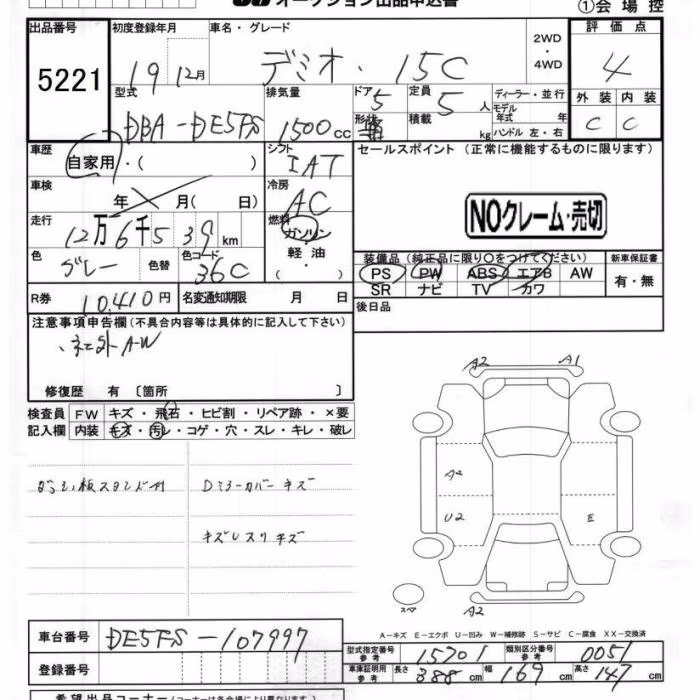 オークション出品申込書
①会場控
出品番号
5221
初度登録年月
19 年 12月
車名・グレード
デミオ・15C
2WD
・
4WD
評価点
4
型式
DBA-DE5FS
排気量
1500cc
ドア
5
形状
定員
5人
積載
kg
ディーラー・並行
モデル
年式 年
ハンドル 左・右
外装 内装
C C
車歴
自家用・( )
シフト
IAT
セールスポイント (正常に機能するものに限ります)
車検
年 月( 日)
冷房
AC
NOクレーム・売切
走行
12万6千539km
燃料
ガソリン
・
軽油
・
( )
色
グレー
色替
色コード
36C
装備品(純正品に限り○をつけてください)
PS PW ABS エアB AW
SR ナビ TV カワ
新車保証書
有・無
R券
10,410円
名変通知期限 月 日
後日品
注意事項申告欄(不具合内容等は具体的に記入して下さい)
A-W
修復歴 有 〔箇所 〕
検査員
記入欄
FW キズ・飛石・ヒビ割・リペア跡・×要
内装 キズ・汚レ・コゲ・穴・スレ・キレ・破レ
A2 A1
A2
U2 E
Dミラーカバーキズ
キズUスリキズ
スペア
A2
A-キズ E-エクボ U-凹み W-補修跡 S-サビ C-腐食 XX-交換済
車台番号
DE5FS-107997
登録番号
型式指定番号
参考
15701
類別区分番号
参考
0051
車庫証明用
参考
長さ 388cm 幅 169cm 高さ 147cm
希望出品コーナー(コーナーは各会場により異なります)